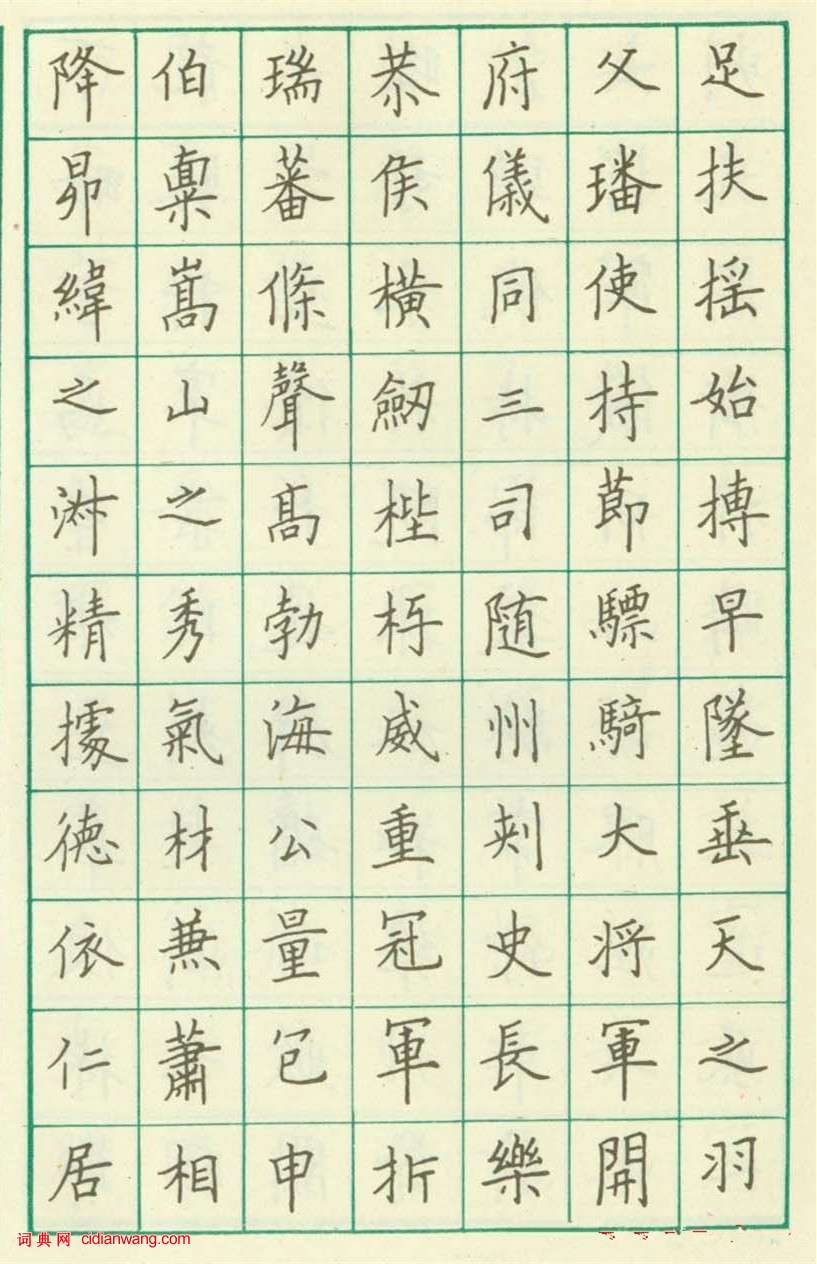 足扶摇始搏早墜垂天之羽
父璠使持節驃騎大將軍開
府儀同三司随州刾史長樂
恭侯横劒桂杅威重冠軍折
瑞蕃條聲髙勃海公量包申
伯稟嵩山之秀氣材蒹蕭相
降昴緯之淋精據德依仁居
词典网 cidianwang.com